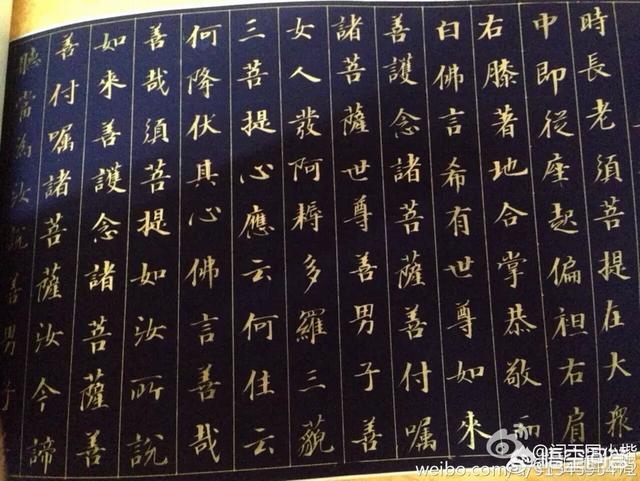 時長老須菩提在大衆
中即從座起偏袒右肩
右膝著地合掌恭敬而
白佛言希有世尊如來
善護念諸菩薩善付囑
諸菩薩世尊善男子善
女人發阿耨多羅三藐
三菩提心應云何住云
何降伏其心佛言善哉
善哉須菩提如汝所說
如來善護念諸菩薩善
善付囑諸菩薩汝今諦
聽當為汝說善男子
weibo.com